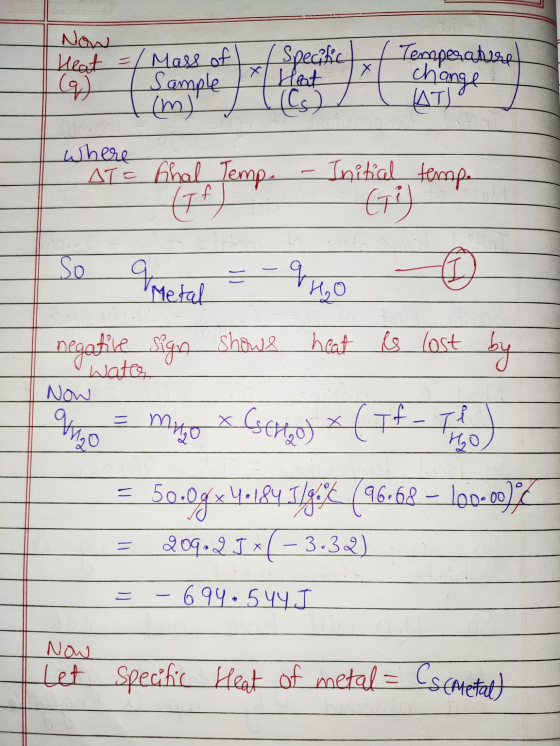 Now
Heat (q) = (Mass of Sample (m)) × (Specific Heat (Cs)) × (Temperature change (ΔT))
where
ΔT = final Temp. - Initial temp.
(T^f) (T^i)
So q_Metal = - q_H2O —— (I)
negative sign shows heat is lost by
water.
Now
q_H2O = m_H2O × Cs(H2O) × (T^f - T^i_H2O)
= 50.0g × 4.184 J/g.°c (96.68 - 100.00)°c
= 209.2 J × (-3.32)
= - 694.544 J
Now
Let Specific Heat of metal = Cs(Metal)